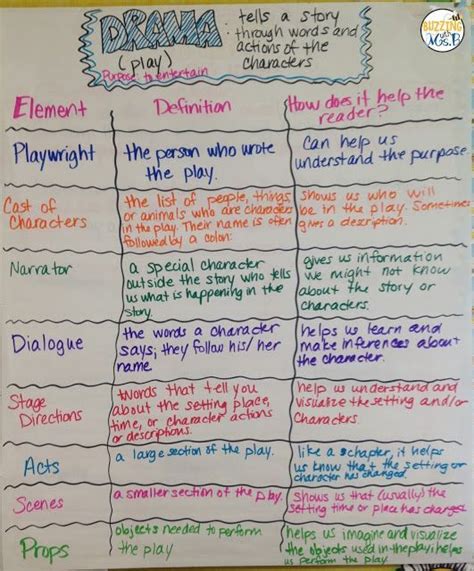 DRAMA: tells a story
through words and
actions of the
characters
(play)
Purpose to entertain
BUZZING
with
Ms. B
Element
Definition
How does it help the
reader?
Playwright
the person who wrote
the play.
can help us
understand the purpose.
Cast of
Characters
the list of people, things
or animals who are characters
in the play. Their name is often
followed by a colon:
shows us who will
be in the play. Sometimes
gives a description.
Narrator
a special character
outside the story who tells
us what is happening in the
story.
gives us information
we might not know
about the story or
characters.
Dialogue
the words a character
says; they follow his/her
name.
helps us learn and
make inferences about
the character.
Stage
Directions
words that tell you
about the setting place,
time, or character actions
or descriptions.
help us understand and
visualize the setting and/or
characters
Acts
a large section of the play.
like a chapter, it helps
us know that the setting or
character has changed.
Scenes
a smaller section of the play.
shows us that (usually) the
setting time or place has changed.
Props
objects needed to perform
the play
helps us imagine and visualize
the objects used in the play; helps
us perform the play.